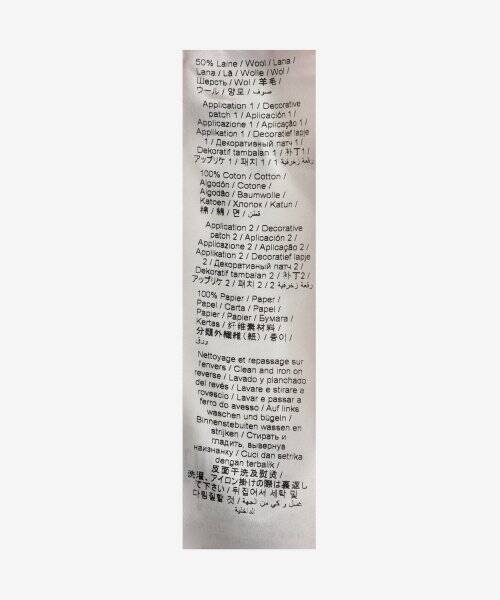 50% Laine / Wool / Lana /
Lana / Lã / Wolle / Wol /
Шерсть / Wol / 羊毛 /
ウール / 양모 / صوف
Application 1 / Decorative
patch 1 / Aplicación 1 /
Applicazione 1 / Aplicação 1 /
Applikation 1 / Decoratief lapje
1 / Декоративный патч 1 /
Dekoratif tambalan 1 / 补丁1 /
アップリケ 1 / 패치 1 / رقعة زخرفية 1
100% Coton / Cotton /
Algodón / Cotone /
Algodão / Baumwolle /
Katoen / Хлопок / Katun /
棉 / 綿 / 면 / قطن
Application 2 / Decorative
patch 2 / Aplicación 2 /
Applicazione 2 / Aplicação 2 /
Applikation 2 / Decoratief lapje
2 / Декоративный патч 2 /
Dekoratif tambalan 2 / 补丁2 /
アップリケ 2 / 패치 2 / رقعة زخرفية 2
100% Papier / Paper /
Papel / Carta / Papel /
Papier / Papier / Бумага /
Kertas / 纤维素材料 /
分類外繊維(紙) / 종이 /
ورق
Nettoyage et repassage sur
l'envers / Clean and iron on
reverse / Lavado y planchado
del revés / Lavare e stirare a
rovescio / Lavar e passar a
ferro do avesso / Auf links
waschen und bügeln /
Binnenstebuiten wassen en
strijken / Стирать и
гладить, вывернув
наизнанку / Cuci dan setrika
dengan terbalik /
反面干洗及熨烫 /
洗濯、アイロン掛けの際は裏返し
て下さい / 뒤집어서 세탁 및
다림질할 것 / غسل و كي من الجهة
الداخلية